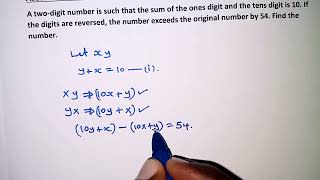 A two-digit number is such that the sum of the ones digit and the tens digit is 10. If
the digits are reversed, the number exceeds the original number by 54. Find the
number.
Let xy
y+x = 10 — (i).
xy ⇒ (10x+y) ✓
yx ⇒ (10y+x) ✓
(10y+x) – (10x+y) = 54.